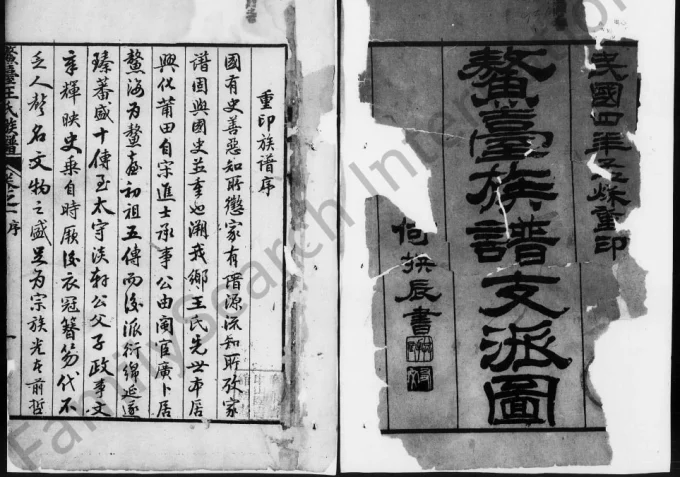 民國四年乙秋重印
鰲臺族譜支派圖
重印族譜序
國有史善惡知所懲家有譜源流知所攷家
譜固與國史並重也溯我鄉王氏先世本居
興化莆田自宗進士承事公由閩官廣卜居
鰲海為鰲臺初祖五傳而後派衍綿延遂
臻蕃盛十傳至太守淡軒公父子政事文
章輝映史乘自時厥後衣冠簪笏代不
乏人聲名文物之盛足為宗族光在前哲
鰲臺王氏族譜 卷之一序
FamilySearch International